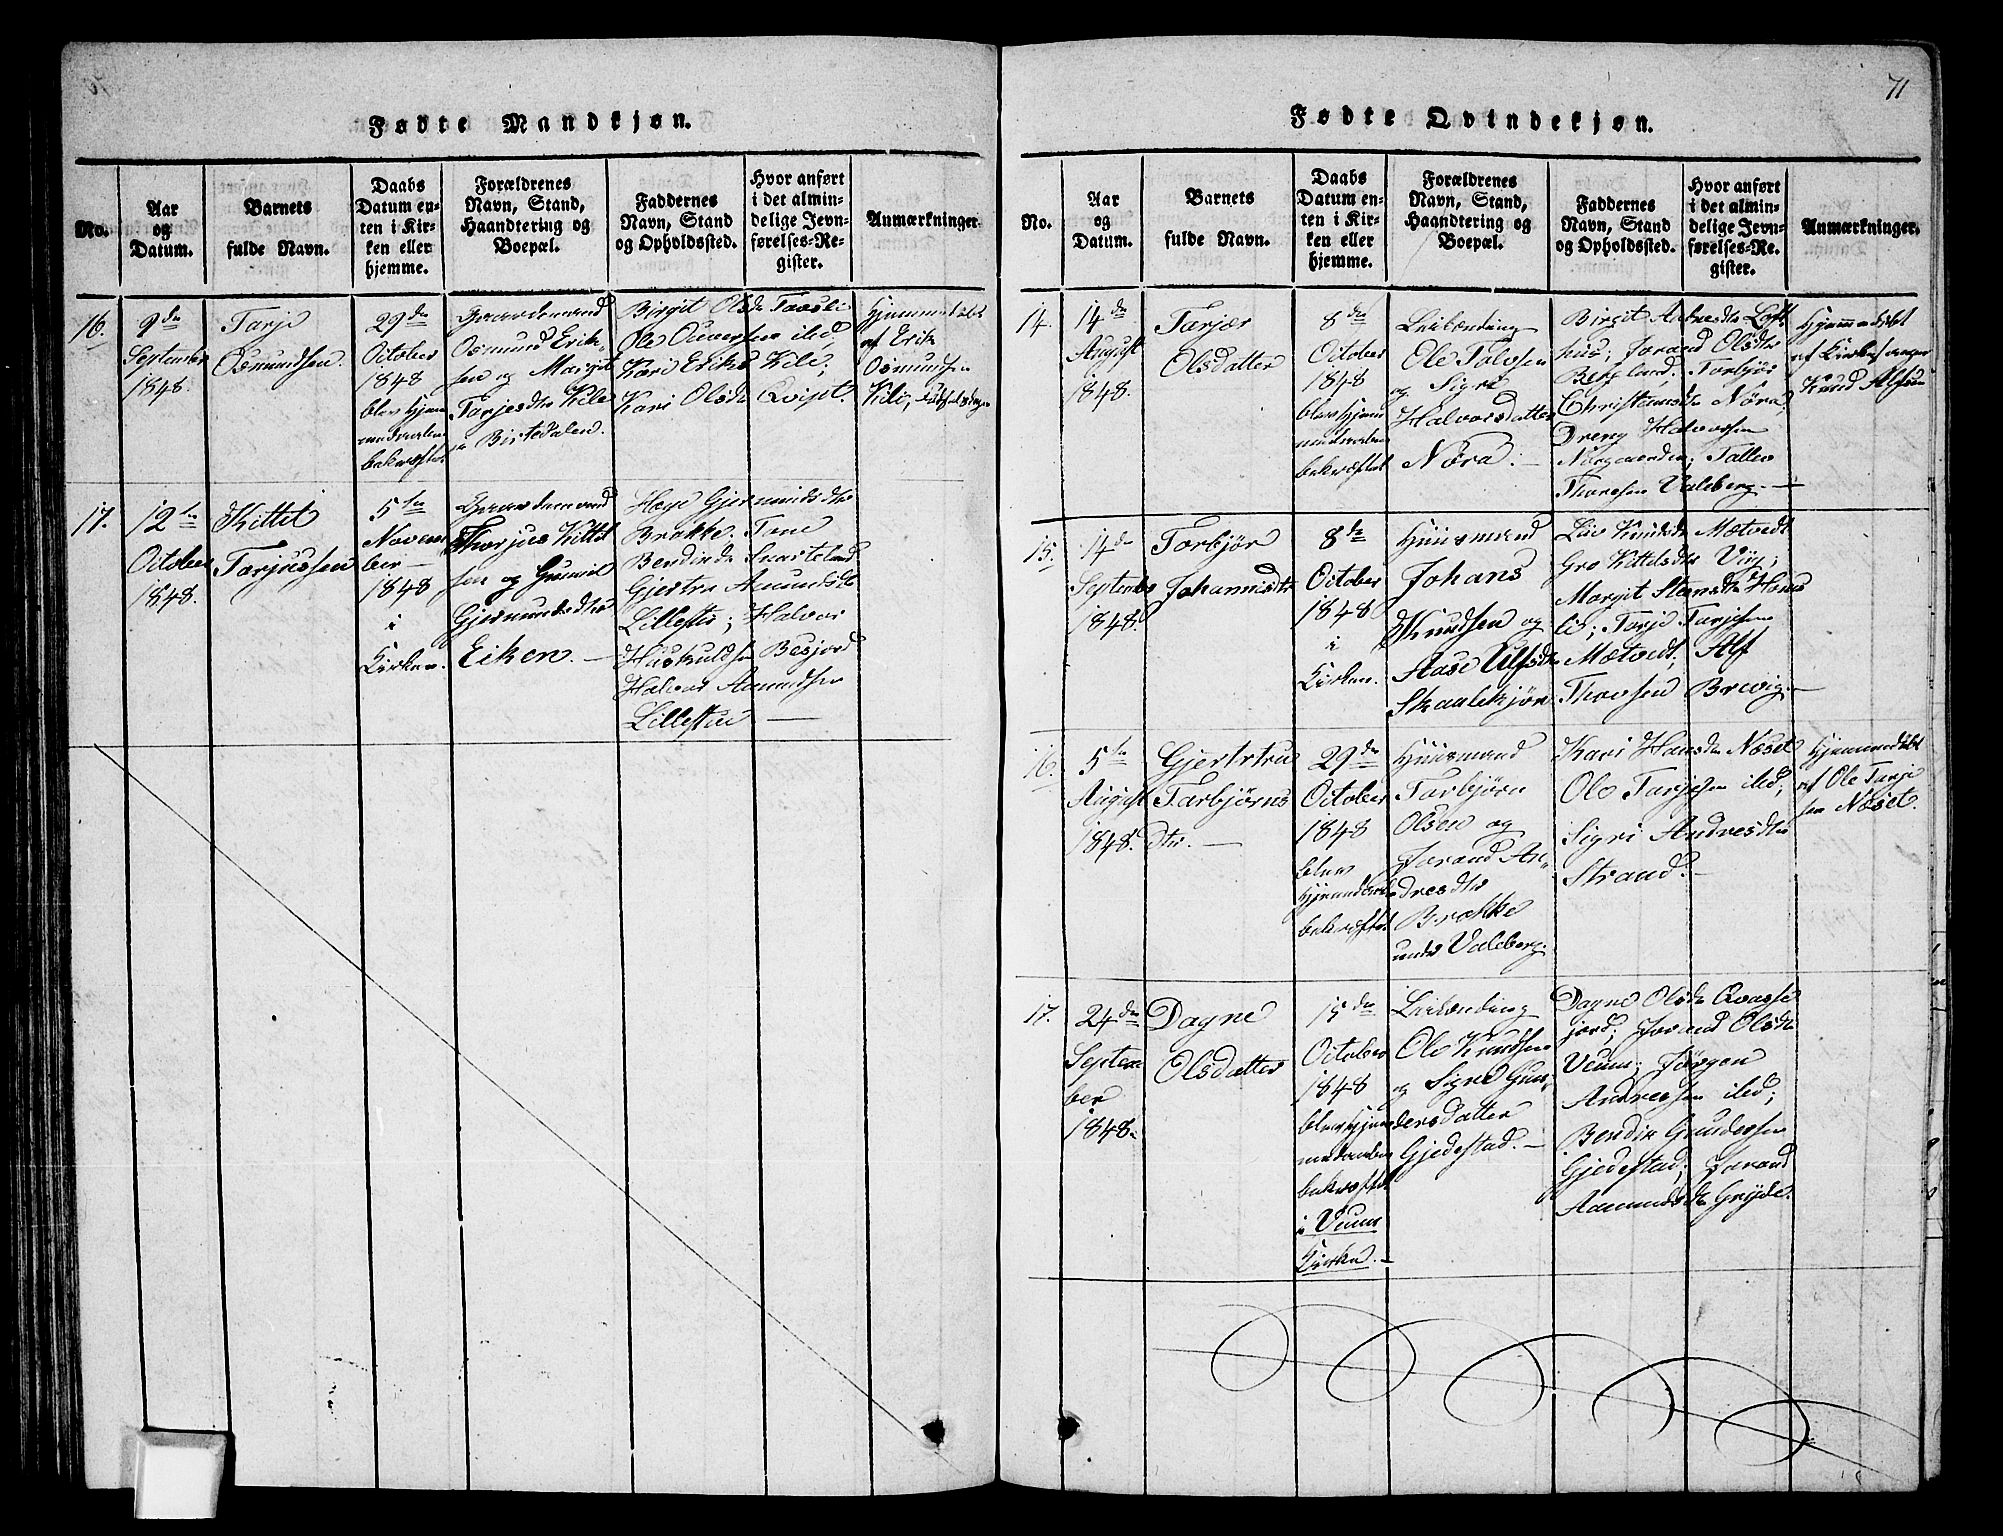 Fødte Mandkjøn.
No.
Aar
og
Datum.
Barnets
fulde Navn.
Daabs
Datum en-
ten i Kir-
ken eller
hjemme.
Forældrenes
Navn, Stand,
Haandtering og
Boepæl.
Faddernes
Navn, Stand
og Opholdssted.
Hvor anført
i det almin-
delige Jevn-
førelses-Re-
gister.
Anmærkninger.
16.
9de
September
1848.
Tarje
Osmundsen
29de
October
1848
blev hjem-
medaaben
bekræftet
Gaardemand
Osmund Erik-
sen og Margit
Tarjesdtr Kile
i Birtedalen.
Birgit Olsdr Tovsli
Ole
Kari Eriksd Kile;
Kari Olsdr Qvipt.
Hjemmedøbt
af Erik
Osmundsen
Kili,
17.
12te
October
1848.
Kittil
Tarjussen
5te
Novem
ber
1848
i
Kirken.
Gaardemand
Thorjus Kittil
sen og Gunnil
Gjermundsdtr
Eiken.
Hæge Gjermundsdtr
Brokke. Tone
Bendixdr Svarteland
Gjertru Amundsdt
Lillestu; Halvor
Huskuldsen Besjord
Halvor Aamundsen
Lillestu
71
Fødte Qvindekjøn.
No.
Aar
og
Datum.
Barnets
fulde Navn.
Daabs
Datum en-
ten i Kir-
ken eller
hjemme.
Forældrenes
Navn, Stand,
Haandtering og
Boepæl.
Faddernes
Navn, Stand
og Opholdssted.
Hvor anført
i det almin-
delige Jevn-
førelses-Re-
gister.
Anmærkninger.
14.
14de
August
1848.
Tarjær
Olsdatter
8de
October
1848
blev hjem
medaaben
bekræftet
Leilænding
Ole Tolvsen
og Sigri
Halvorsdatter
Nora.
Birgit Andresdtr Loft
hus; Jorand Olsdtr
Bergland; Torbjør
Christensdr Nora.
Dreng Halvorsen
Tallev
Thoresen Valeberg.
Hjemmedøbt
af Kirkesanger
Knud Alfsen
15.
14de
September
1848.
Torbjør
Johannisdtr
8de
October
1848
i
Kirken.
Huusmand
Johans
Knudsen og
Aase Ulfsdr
Skaalekjør
Liv Knudsdr Mætvedt
Gro Kittelsdtr Viig;
Margit Steansdtr Hous
li; Tarje Tarjesen
Mætvedt; Alf
Thovsen Brevig.
16.
5te
August
1848.
Gjertrtru
Tarbjørns
dtr.
29de
October
1848
blev
hjemmedaab
bekræftet
Huusmand
Tarbjørn
Olsen og
Jorand An-
dresdtr
Brokke
under Valeberg.
Kari Hansdr Næset
Ole Tarjesen ibid;
Sigri Andresdtr
Strand.
Hjemmedøbt
af Ole Tarje
sen Næset.
17.
24de
Septem-
ber
1848.
Dagne
Olsdatter
15de
October
1848
blev hjem
medaaben
bekræftet
i Veum
Kirke.
Leilænding
Ole Knudsen
og Signe Gun-
dersdatter
Gjedestad.
Dagne Olsdr Qvaase
jord; Jorand Olsdtr
Veum; Jørgen
Andresen ibid;
Bendix Gundersen
Gjedestad; Jorand
Aamundsdr Grijde.